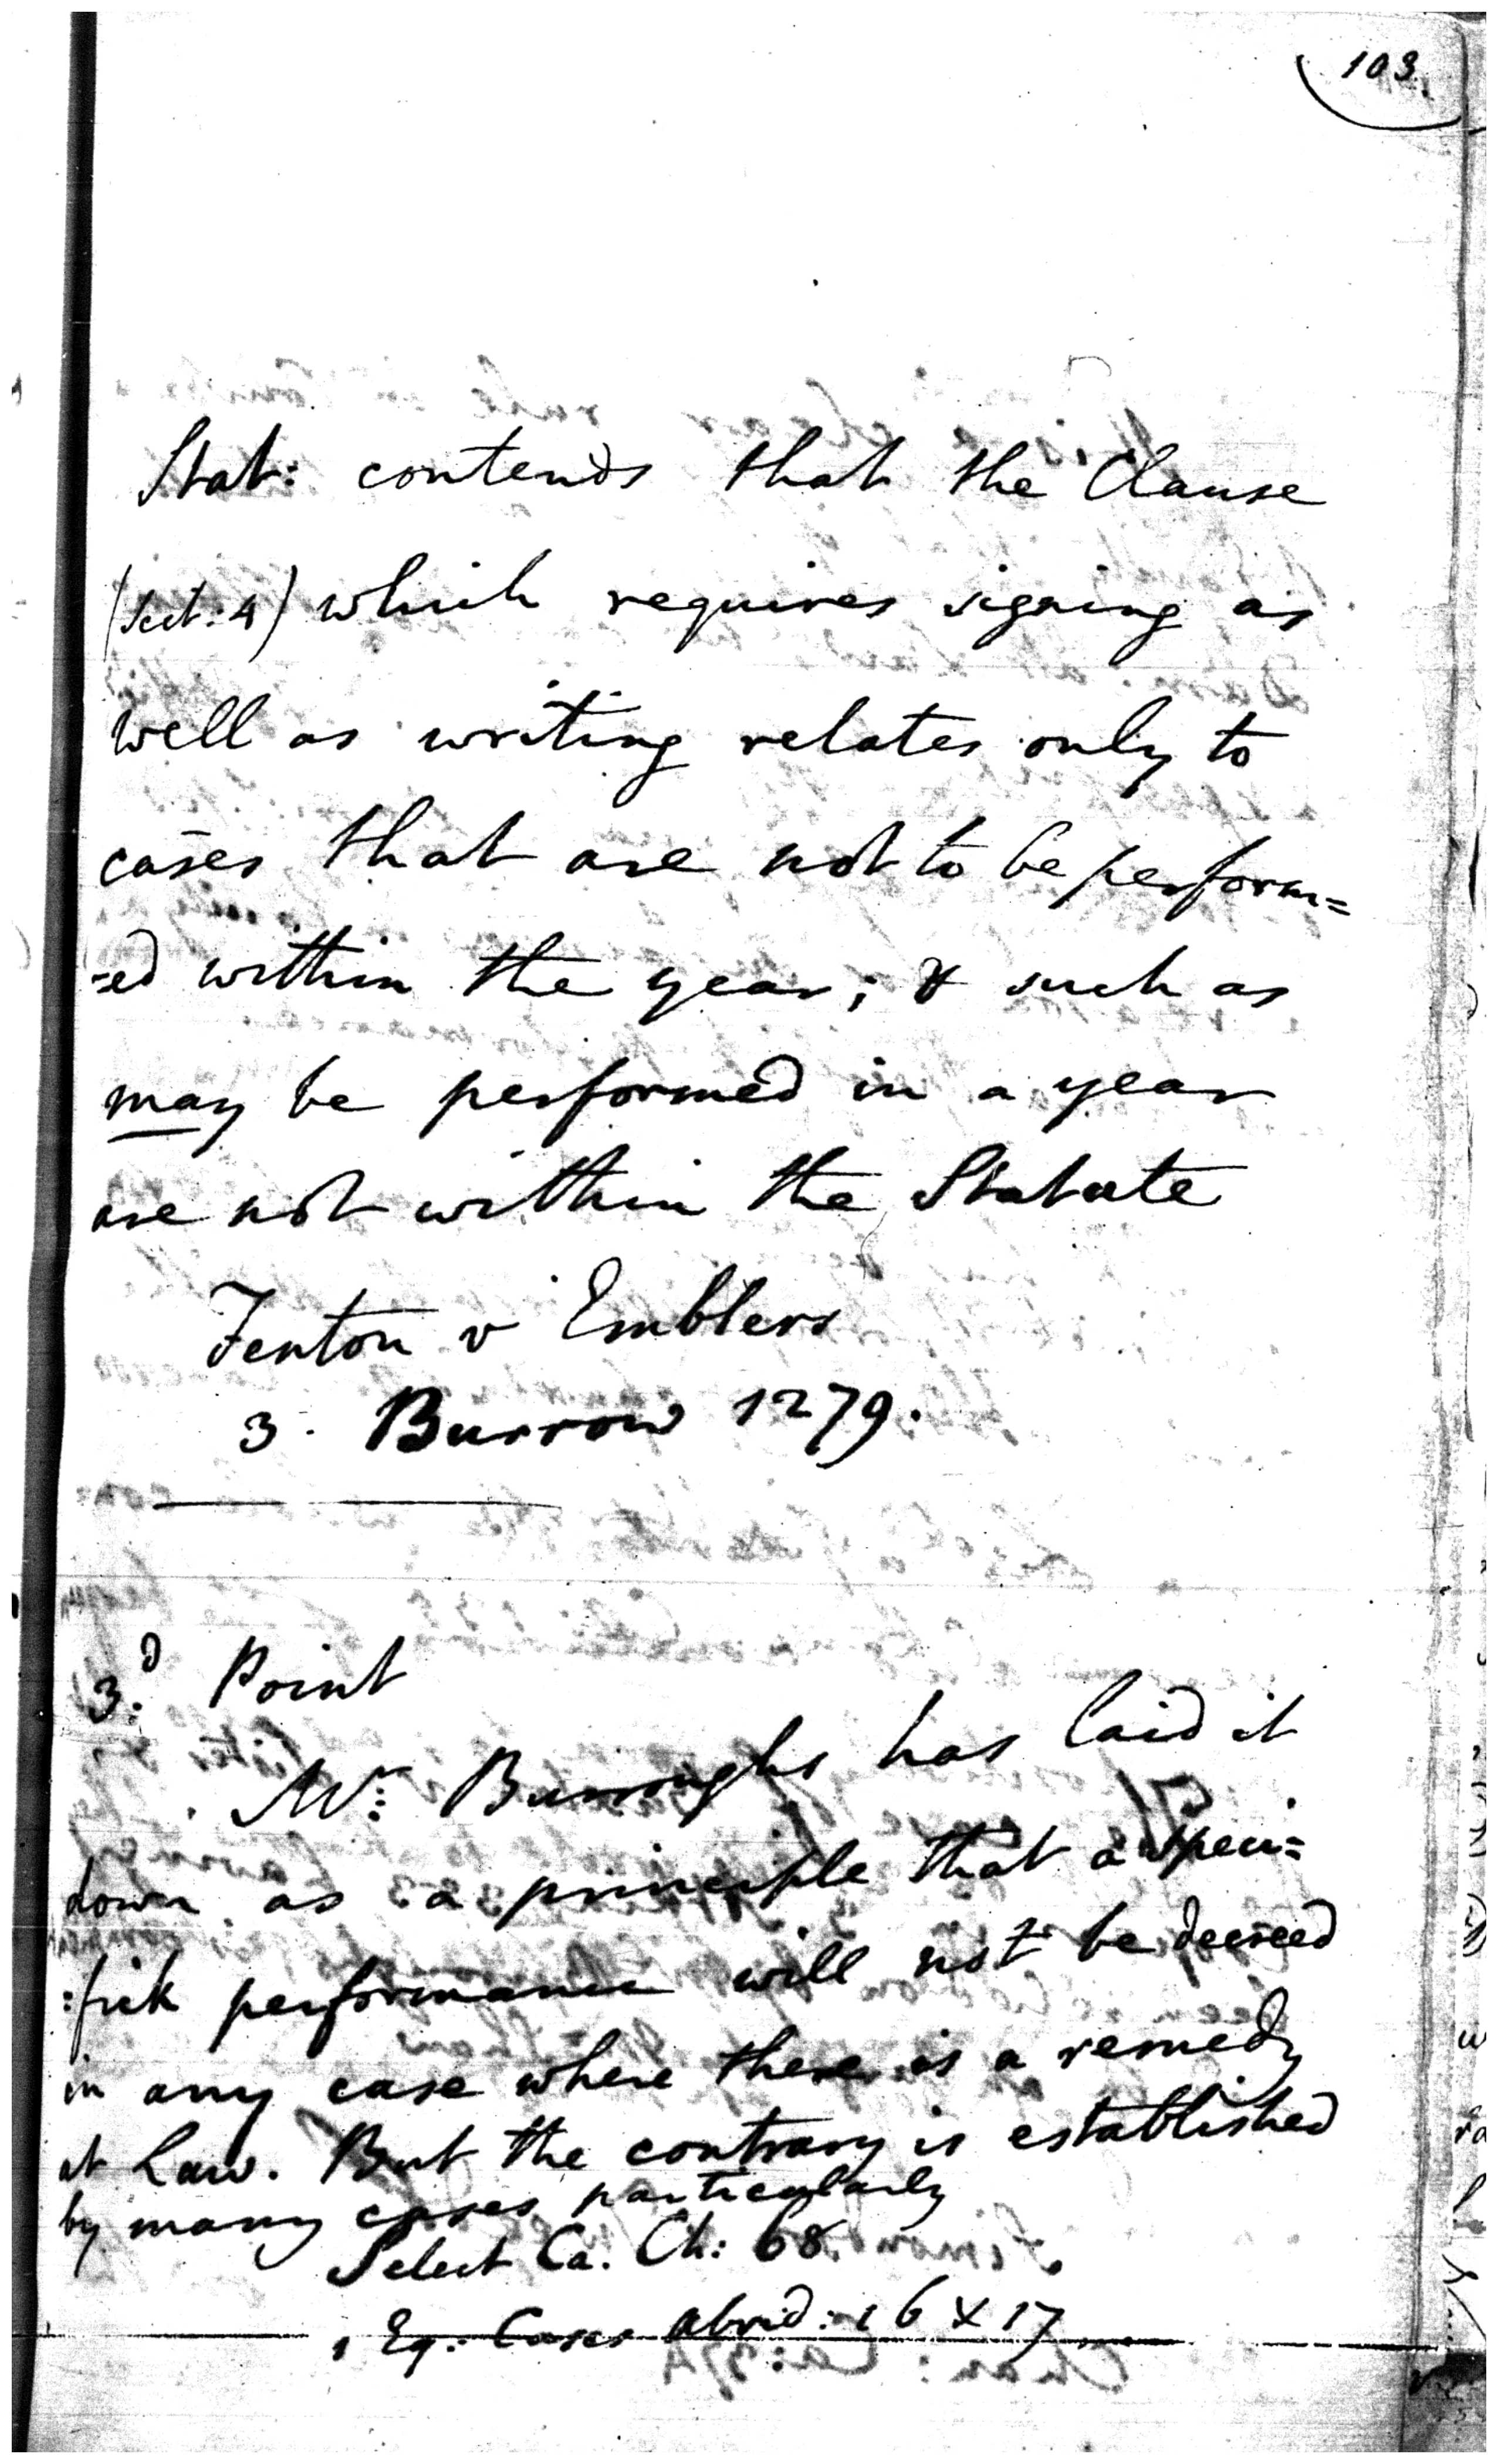 103
Stat: contends that the Clause
(Sect: 4) which requires signing as
well as writing relates only to
cases that are not to be perform=
=ed within the year; & such as
may be performed in a year
are not within the Statute
Fenton v Emblers
3. Burrow 1279.
3.d Point
Mr: Burroughs has laid it
down as a principle that a speci=
:fick performance will not be decreed
in any case where there is a remedy
at Law. But the contrary is established
by many cases particularly
Select Ca. Ch: 68.
1 Eq: Cases Abrid: 16 & 17